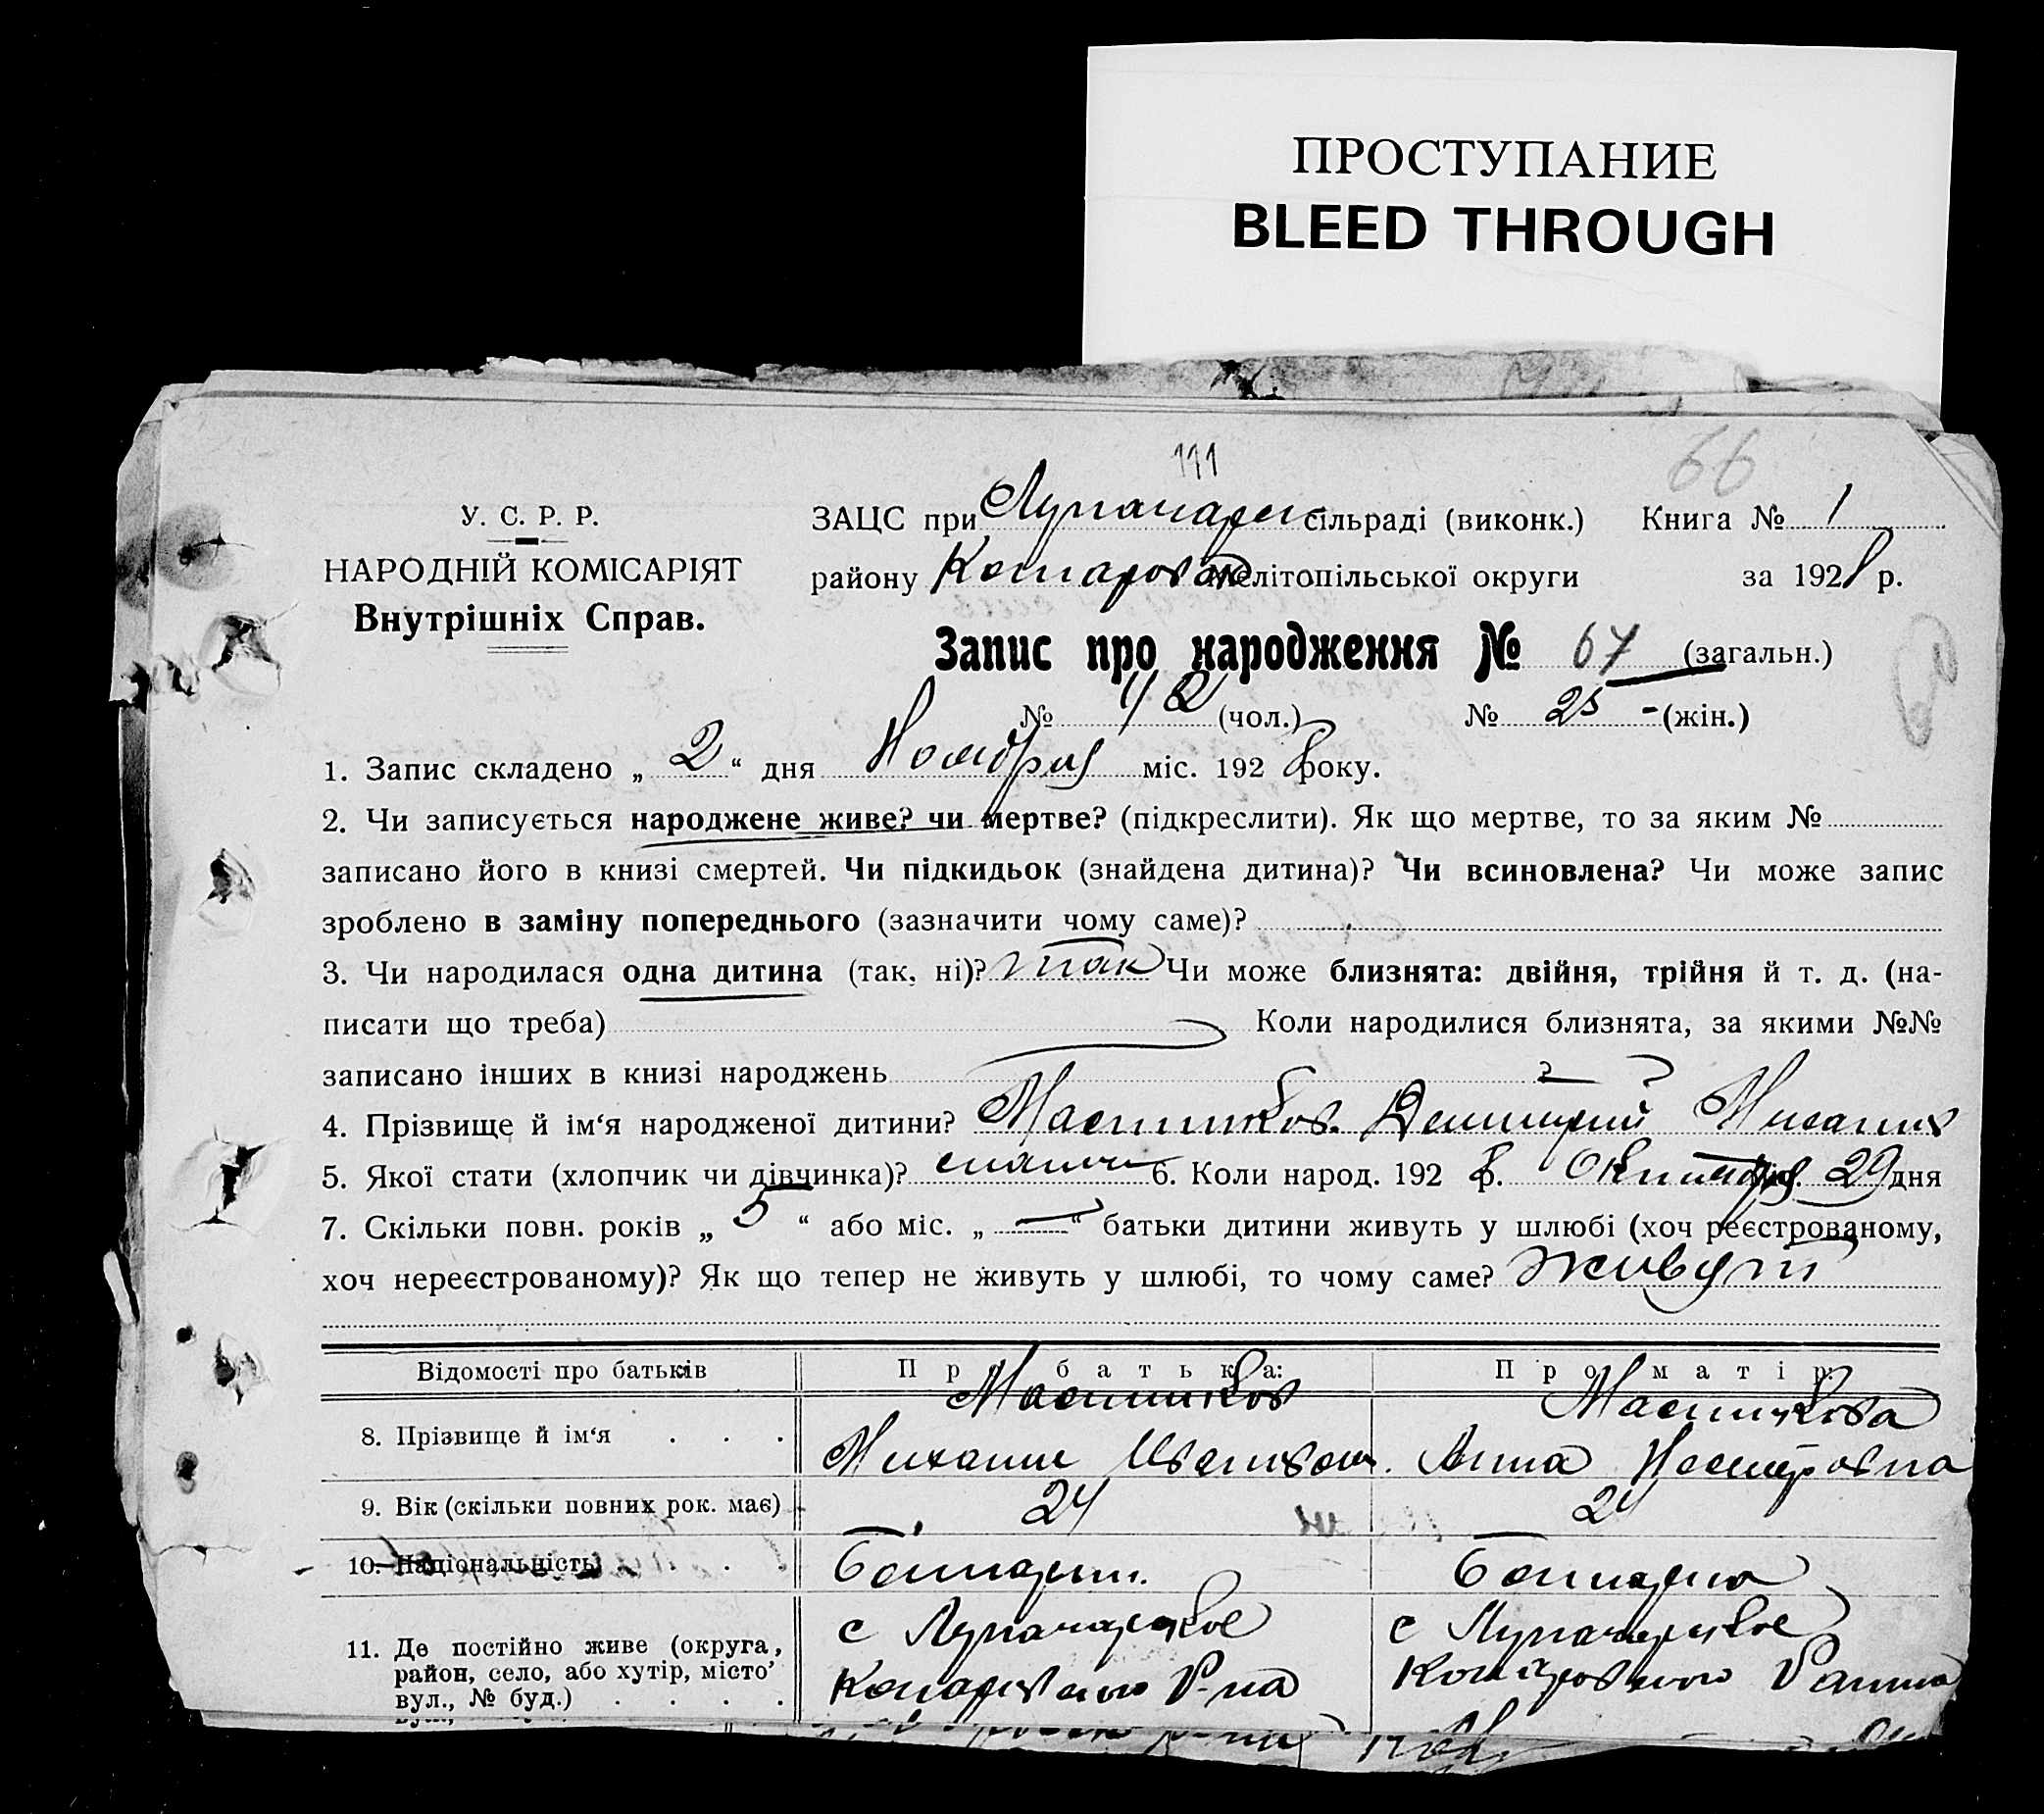 ПРОСТУПАНИЕ
BLEED THROUGH
111
66
У. С. Р. Р.
НАРОДНІЙ КОМІСАРІЯТ
Внутрішніх Справ.
ЗАЦС при Луначарск сільраді (виконк.) Книга № 1
району Мелітопільської округи за 1928 р.
Запис про народження № 67 (загальн.)
№ 42 (чол.) № 25 - (жін.)
1. Запис складено „ 2 “ дня Ноября міс. 192 8 року.
2. Чи записується народжене живе? чи мертве? (підкреслити). Як що мертве, то за яким №
записано його в книзі смертей. Чи підкидьок (знайдена дитина)? Чи всиновлена? Чи може запис
зроблено в заміну попереднього (зазначити чому саме)?
3. Чи народилася одна дитина (так, ні)? так Чи може близнята: двійня, трійня й т. д. (на-
писати що треба) Коли народилися близнята, за якими №№
записано інших в книзі народжень
4. Прізвище й ім‘я народженої дитини? Димитрий
5. Якої стати (хлопчик чи дівчинка)? 6. Коли народ. 192 8 р. Октября міс. 29 дня
7. Скільки повн. років „ 5 “ або міс. „ — “ батьки дитини живуть у шлюбі (хоч реєстрованому,
хоч нереєстрованому)? Як що тепер не живуть у шлюбі, то чому саме? живут
Відомості про батьків
Про батька:
Про матір:
8. Прізвище й ім‘я . . .
Михаил Иванов.
Анна
9. Вік (скільки повних рок. має)
24
24
10. Національність . .
Болгарин.
Болгарка
11. Де постійно живе (округа,
район, село, або хутір, місто
вул., № буд.) . . . .
с Луначарское
Р-на
с Луначарское
Района